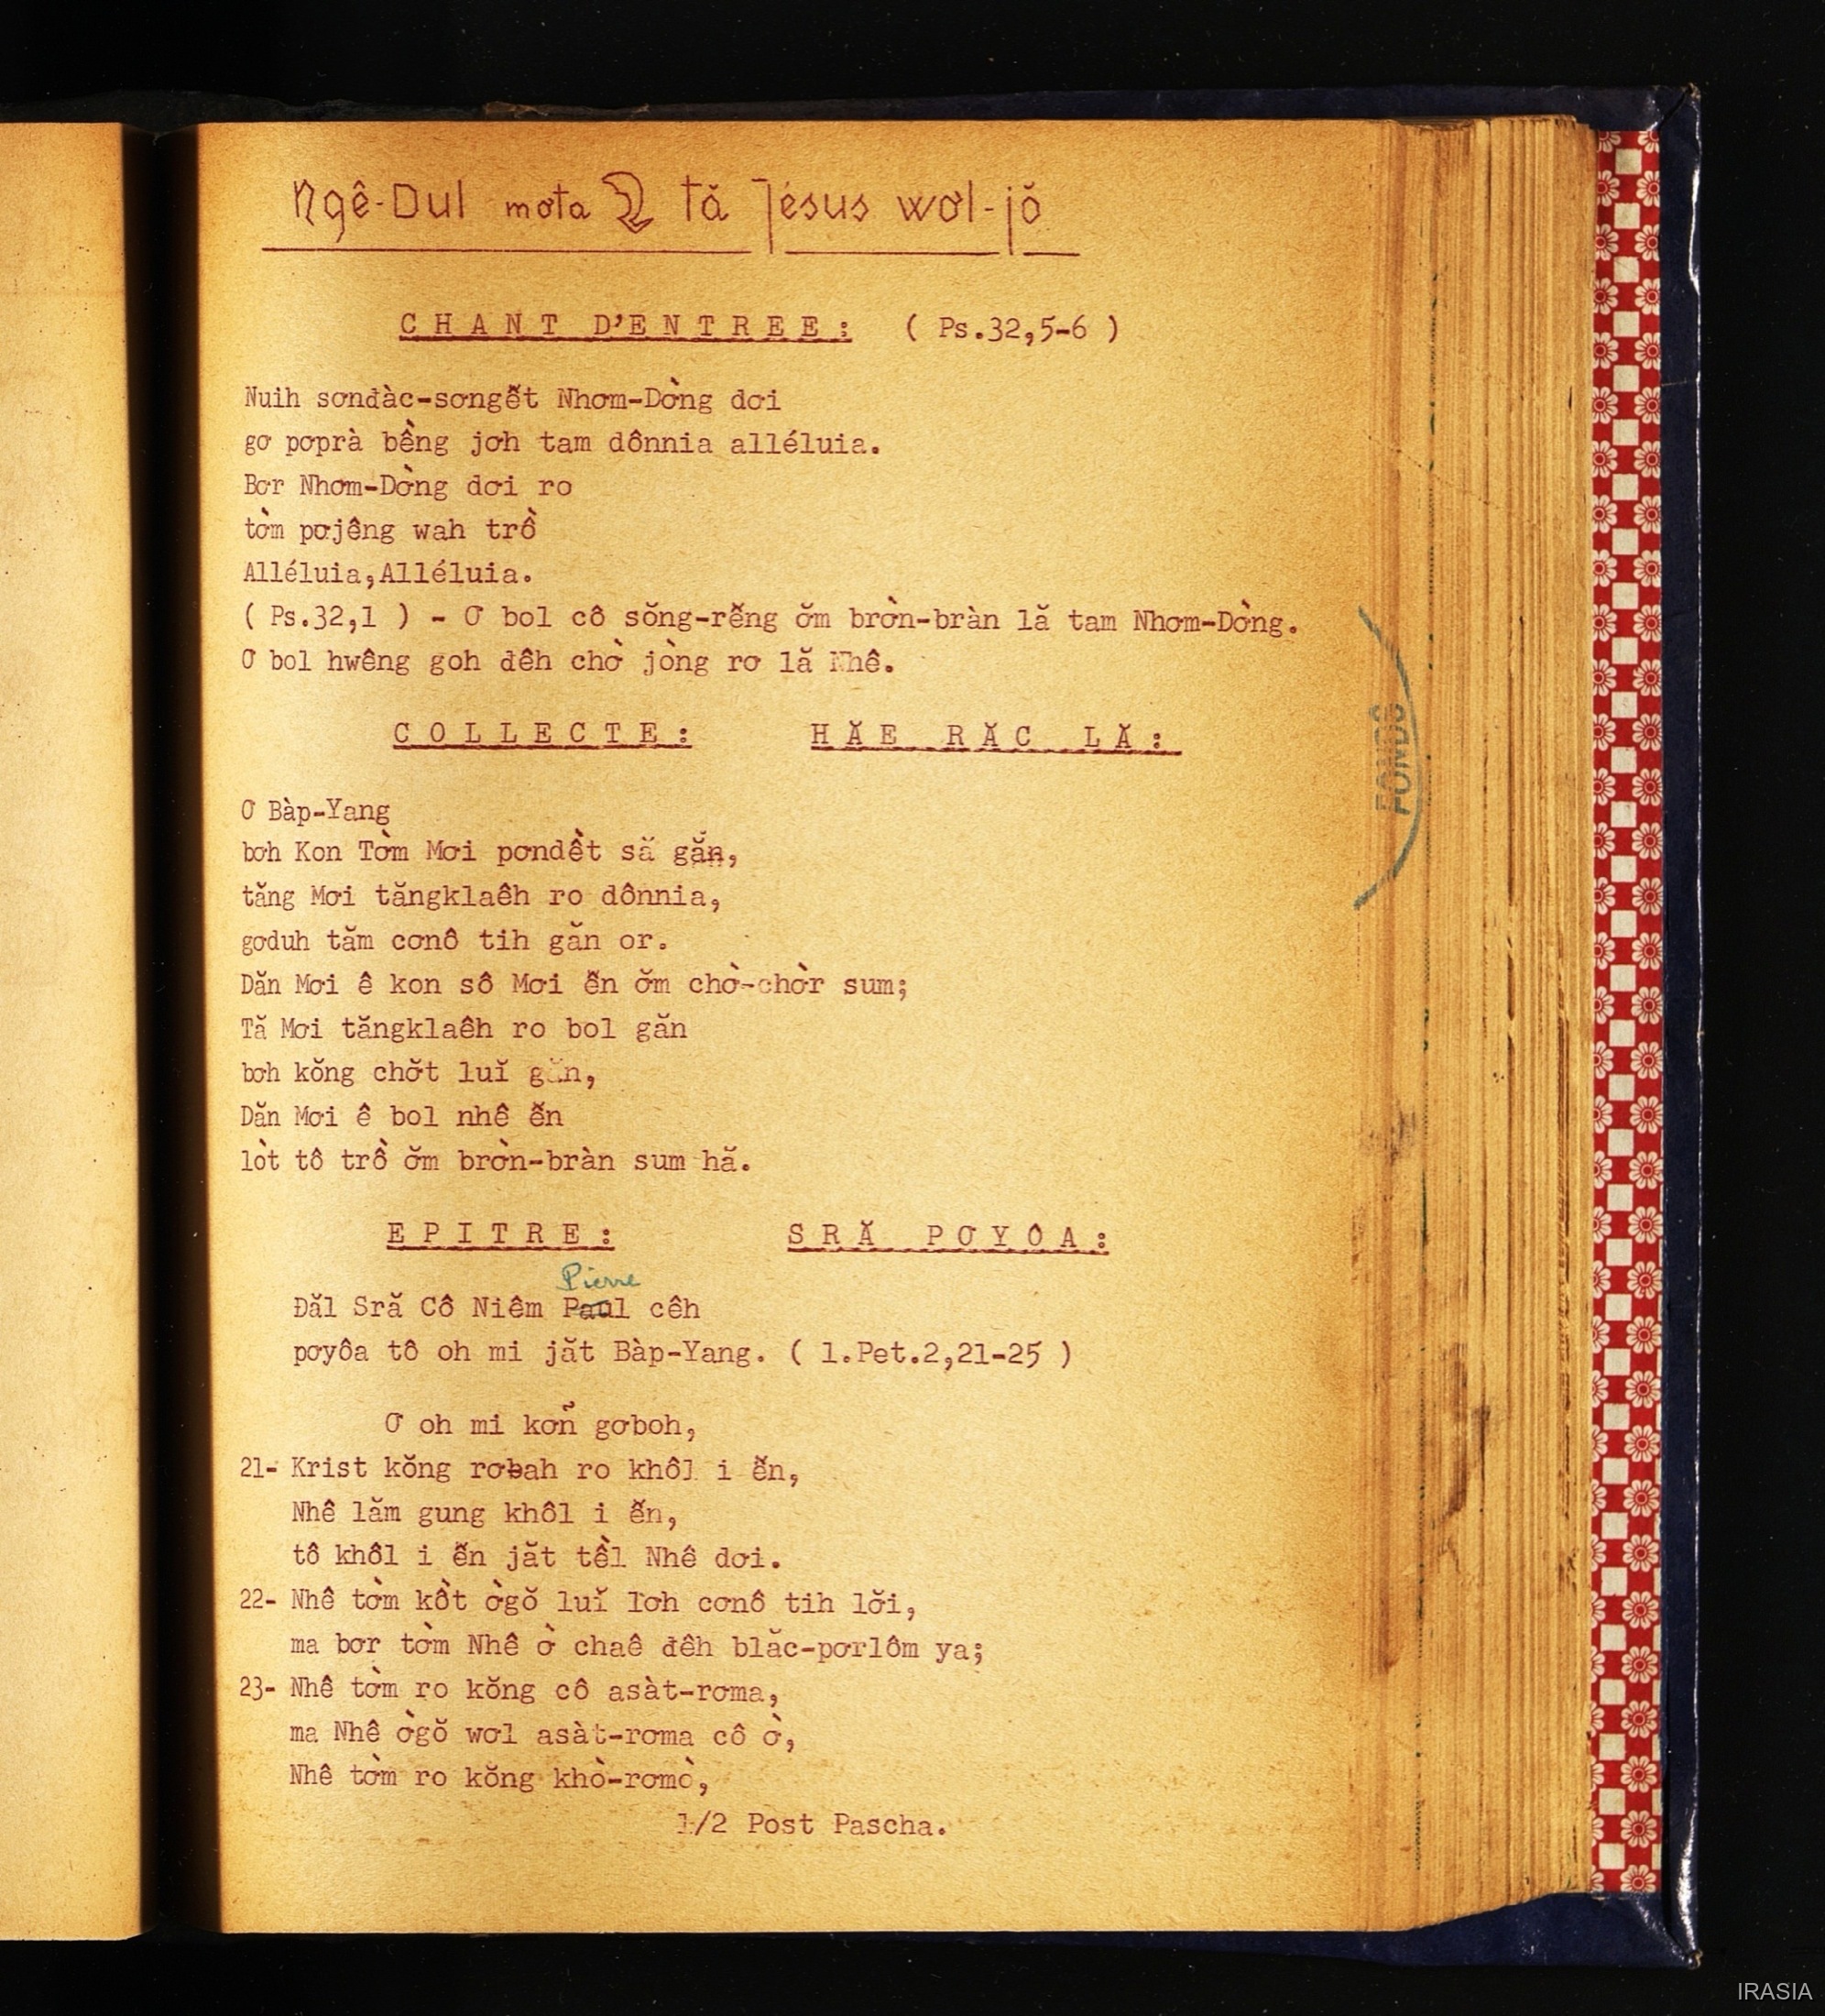 Ngê-Dul mơta 2 tă Jésus wơl-jŏ
CHANT D'ENTREE: ( Ps.32,5-6 )
Nuih sơnđàc-sơngê̆t Nhơm-Dờng dơi
gơ pơprà bềng jơh tam dônnia alléluia.
Bơr Nhơm-Dờng dơi ro
tờm pơjêng wah trồ
Alléluia,Alléluia.
( Ps.32,1 ) - Ơ bol cô sŏng-rê̆ng ơ̆m brờn-bràn lă tam Nhơm-Dờng.
Ơ bol hwêng goh đêh chờ jòng rơ lă Nhê.
COLLECTE: HĂE RĂC LĂ:
Ơ Bàp-Yang
bơh Kon Tờm Mơi pơndềt să găn,
tăng Mơi tăngklaêh ro dônnia,
gơduh tăm cơnô tih găn or.
Dăn Mơi ê kon sô Mơi ê̆n ơ̆m chờ-chờr sum;
Tă Mơi tăngklaêh ro bol găn
bơh kŏng chơ̆t luĭ găn,
Dăn Mơi ê bol nhê ê̆n
lòt tô trồ ơ̆m brờn-bràn sum hă.
EPITRE: SRĂ PƠYÔA:
Pierre
Đăl Sră Cô Niêm Paul cêh
pơyôa tô oh mi jăt Bàp-Yang. ( 1.Pet.2,21-25 )
Ơ oh mi kơn̉ gơboh,
21- Krist kŏng rơbah ro khôl i ê̆n,
Nhê lăm gung khôl i ê̆n,
tô khôl i ê̆n jăt tềl Nhê dơi.
22- Nhê tờm kồt ờgŏ luĭ lơh cơnô tih lơ̆i,
ma bơr tờm Nhê ờ chaê đêh blăc-pơrlôm ya;
23- Nhê tờm ro kŏng cô asàt-rơma,
ma Nhê ờgŏ wơl asàt-rơma cô ờ,
Nhê tờm ro kŏng khò-rơmò,
1/2 Post Pascha.
FONDS
IRASIA